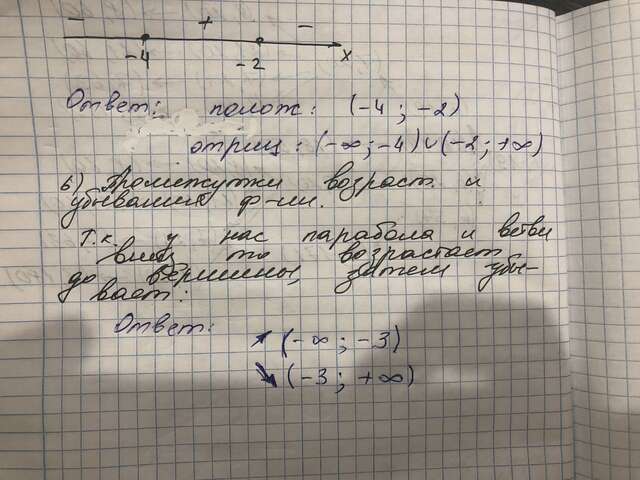 - + -
-4 -2 x
Ответ: полож: (-4 ; -2)
отриц : (-∞ ; -4) ∪ (-2 ; +∞)
б) Промежутки возраст. и
убывания ф-ии.
Т.к. у нас парабола и ветви
вниз то возрастает
до вершины, затем убы-
вает:
Ответ:
↗ (-∞ ; -3)
↘ (-3 ; +∞)